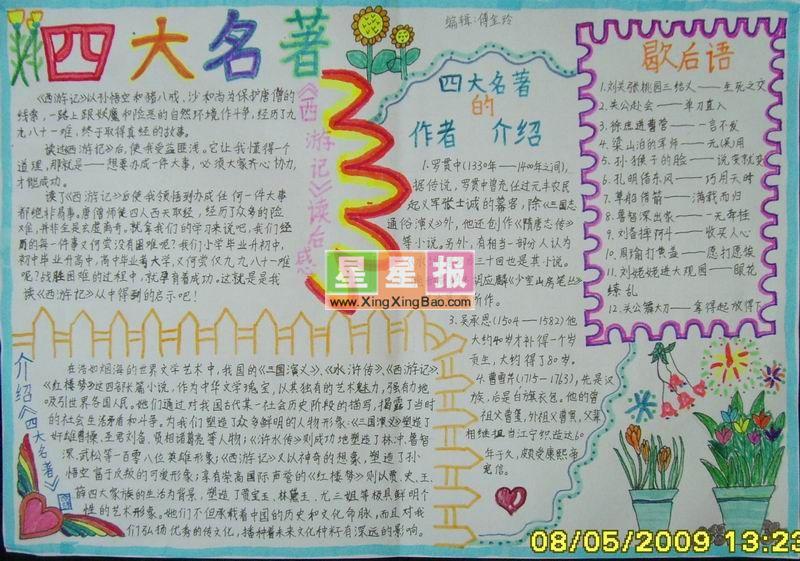 四大名著
《西游记》读后感
《西游记》以孙悟空和猪八戒,沙和尚为保护唐僧的
线索,一路上跟妖魔和险恶的自然环境作斗争,经历了九
九八十一难,终于取得真经的故事。
读过《西游记》后,使我受益匪浅。它让我懂得个
道理,那就是——想要办成一件大事,必须大家齐心协力,
才能成功。
读了《西游记》后使我领悟到办成任何一件大事
都绝非易事。唐僧师徒四人西天取经,经历了众多的险
就拿我们的学习来说吧,我们经
历的每一件事又何尝没有困难呢?我们小学毕业升初中,
初中毕业升高中,高中毕业考大学,又何尝仅九九八十一难
呢?战胜困难的过程中,就孕育着成功。这就是是我
读《西游记》从中得到的启示吧!
编辑:傅
四大名著
的
作者 介绍
1.罗贯中(1330年——1400年之间),
据传说,罗贯中曾充任过元丰农民
起义军张士诚的幕客,除《三国志
通俗演义》外,他还创作《隋唐志传》
等小说。另外,有相当一部分人认为
三十回也是其小说。
胡应麟《少室山房笔丛》
所作。
3.吴承恩(1504—1582)他
大约40岁才补得一个岁
贡生,大约得了80岁。
4.曹雪芹(1715—1763),先是汉
族,后是白旗衣包,他的曾
祖父曹玺,外祖父曹寅,父辈
相继担当江宁织造达60
年于久,颇受康熙帝
宠信。
歇后语
1.刘关张桃园三结义——生死之交
2.关公赴会——单刀直入
3.徐庶进曹营——一言不发
4.梁山泊的军师——无(吴)用
5.孙猴子的脸——说变就变
6.孔明借东风——巧用天时
7.草船借箭——满载而归
8.鲁智深出家——一无牵挂
9.刘备摔阿斗——收买人心
10.周瑜打黄盖——愿打愿挨
11.刘姥姥进大观园——眼花
缭乱
12.关公舞大刀——拿得起放得下
介绍《四大名著》
在浩如烟海的世界文学艺术中,我国的《三国演义》、《水浒传》、《西游记》、
《红楼梦》这四部长篇小说,作为中华文学瑰宝,以其独有的艺术魅力,强有力地
吸引世界各国人民。他们通过对我国古代某一社会历史阶段的描写,揭露了当时
的社会生活矛盾和斗争。为我们塑造了众多鲜明的人物形象:《三国演义》塑造了
奸雄曹操,圣君刘备,贤相诸葛亮等人物;《水浒传》则成功地塑造了林冲,鲁智
深,武松等一百零八位英雄形象;《西游记》又以神奇的想象,塑造了孙
悟空富于反叛的可爱形象;享有崇高国际声誉的《红楼梦》则以贾、史、王、
薛四大家族的生活为背景,塑造了贾宝玉、林黛玉、尤三姐等极具鲜明个
性的艺术形象。她们不但承载着中国的历史和文化命脉,而且对我
们弘扬优秀的传文化,播种着未来文化种籽有深远的影响。
星星报
www.XingXingBao.com
08/05/2009 13:23